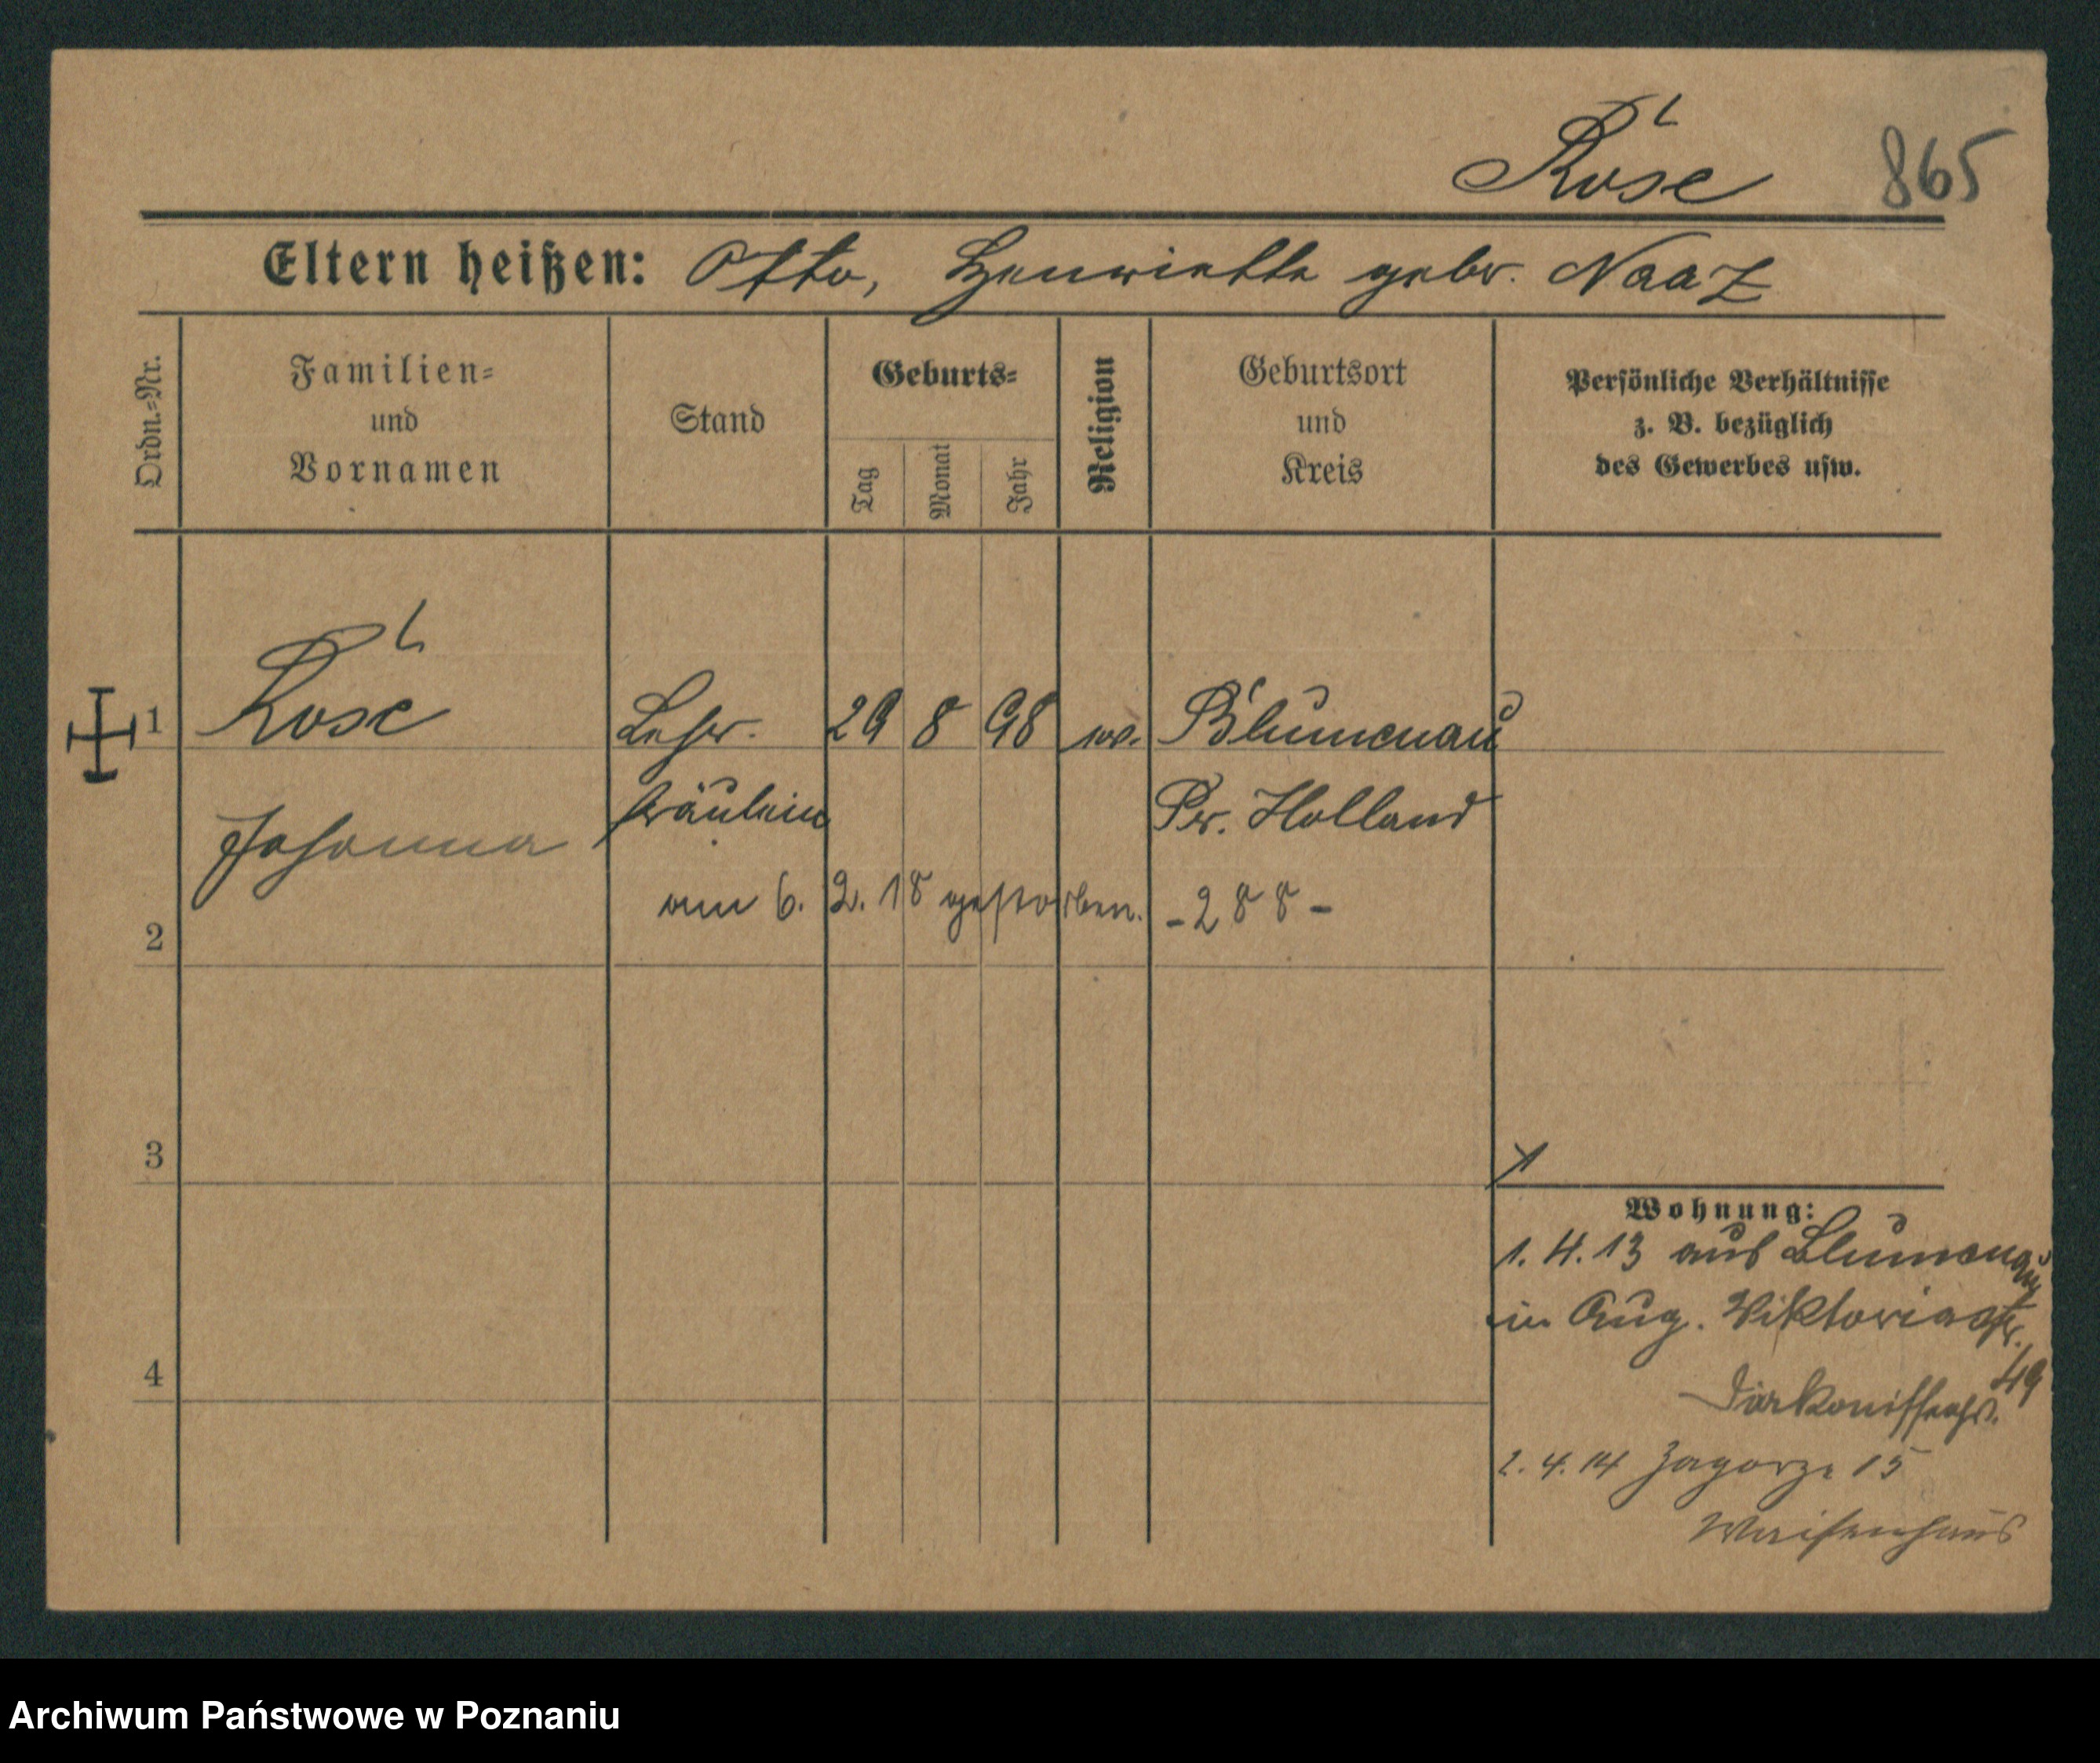 Rose 865
Eltern heißen: Otto, Henriette gebr. Naaz
Ordn.-Nr.
Familien-
und
Vornamen
Stand
Geburts-
Tag
Monat
Jahr
Religion
Geburtsort
und
Kreis
Persönliche Verhältnisse
z. B. bezüglich
des Gewerbes usw.
1 Rose Lehr. 29 8 98 ev. Blumenau
Johanna fräulein Pr. Holland
am 6. 2. 18 gestorben. -288-
2
3
Wohnung:
1. 4. 13 aus Blumenau
in Aug. Viktoriastr.
49
4
Diakonissenhs.
2. 4. 14 Zagorze 15
Waisenhaus
Archiwum Państwowe w Poznaniu